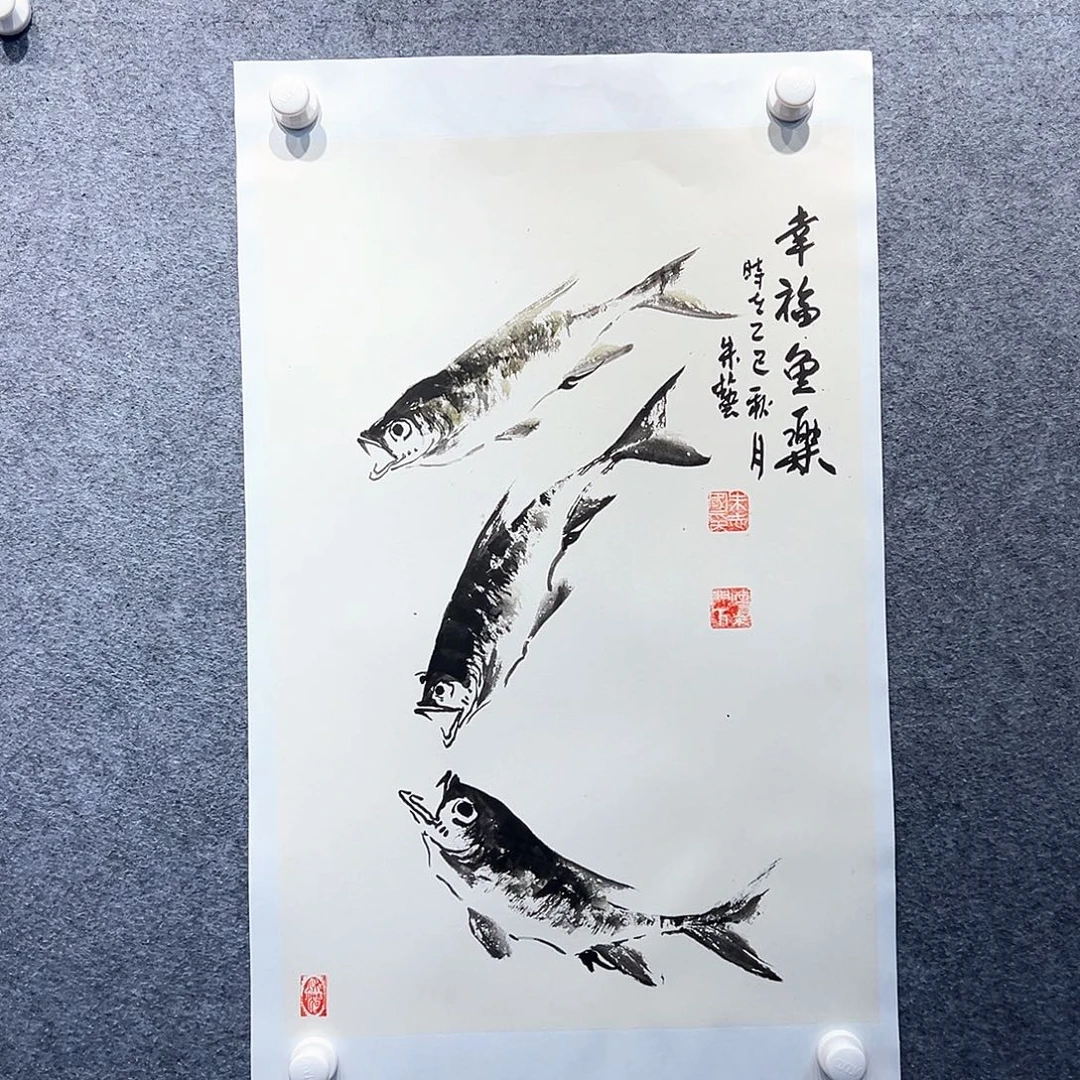 幸福鱼乐
時在乙巳秋月
朱藝